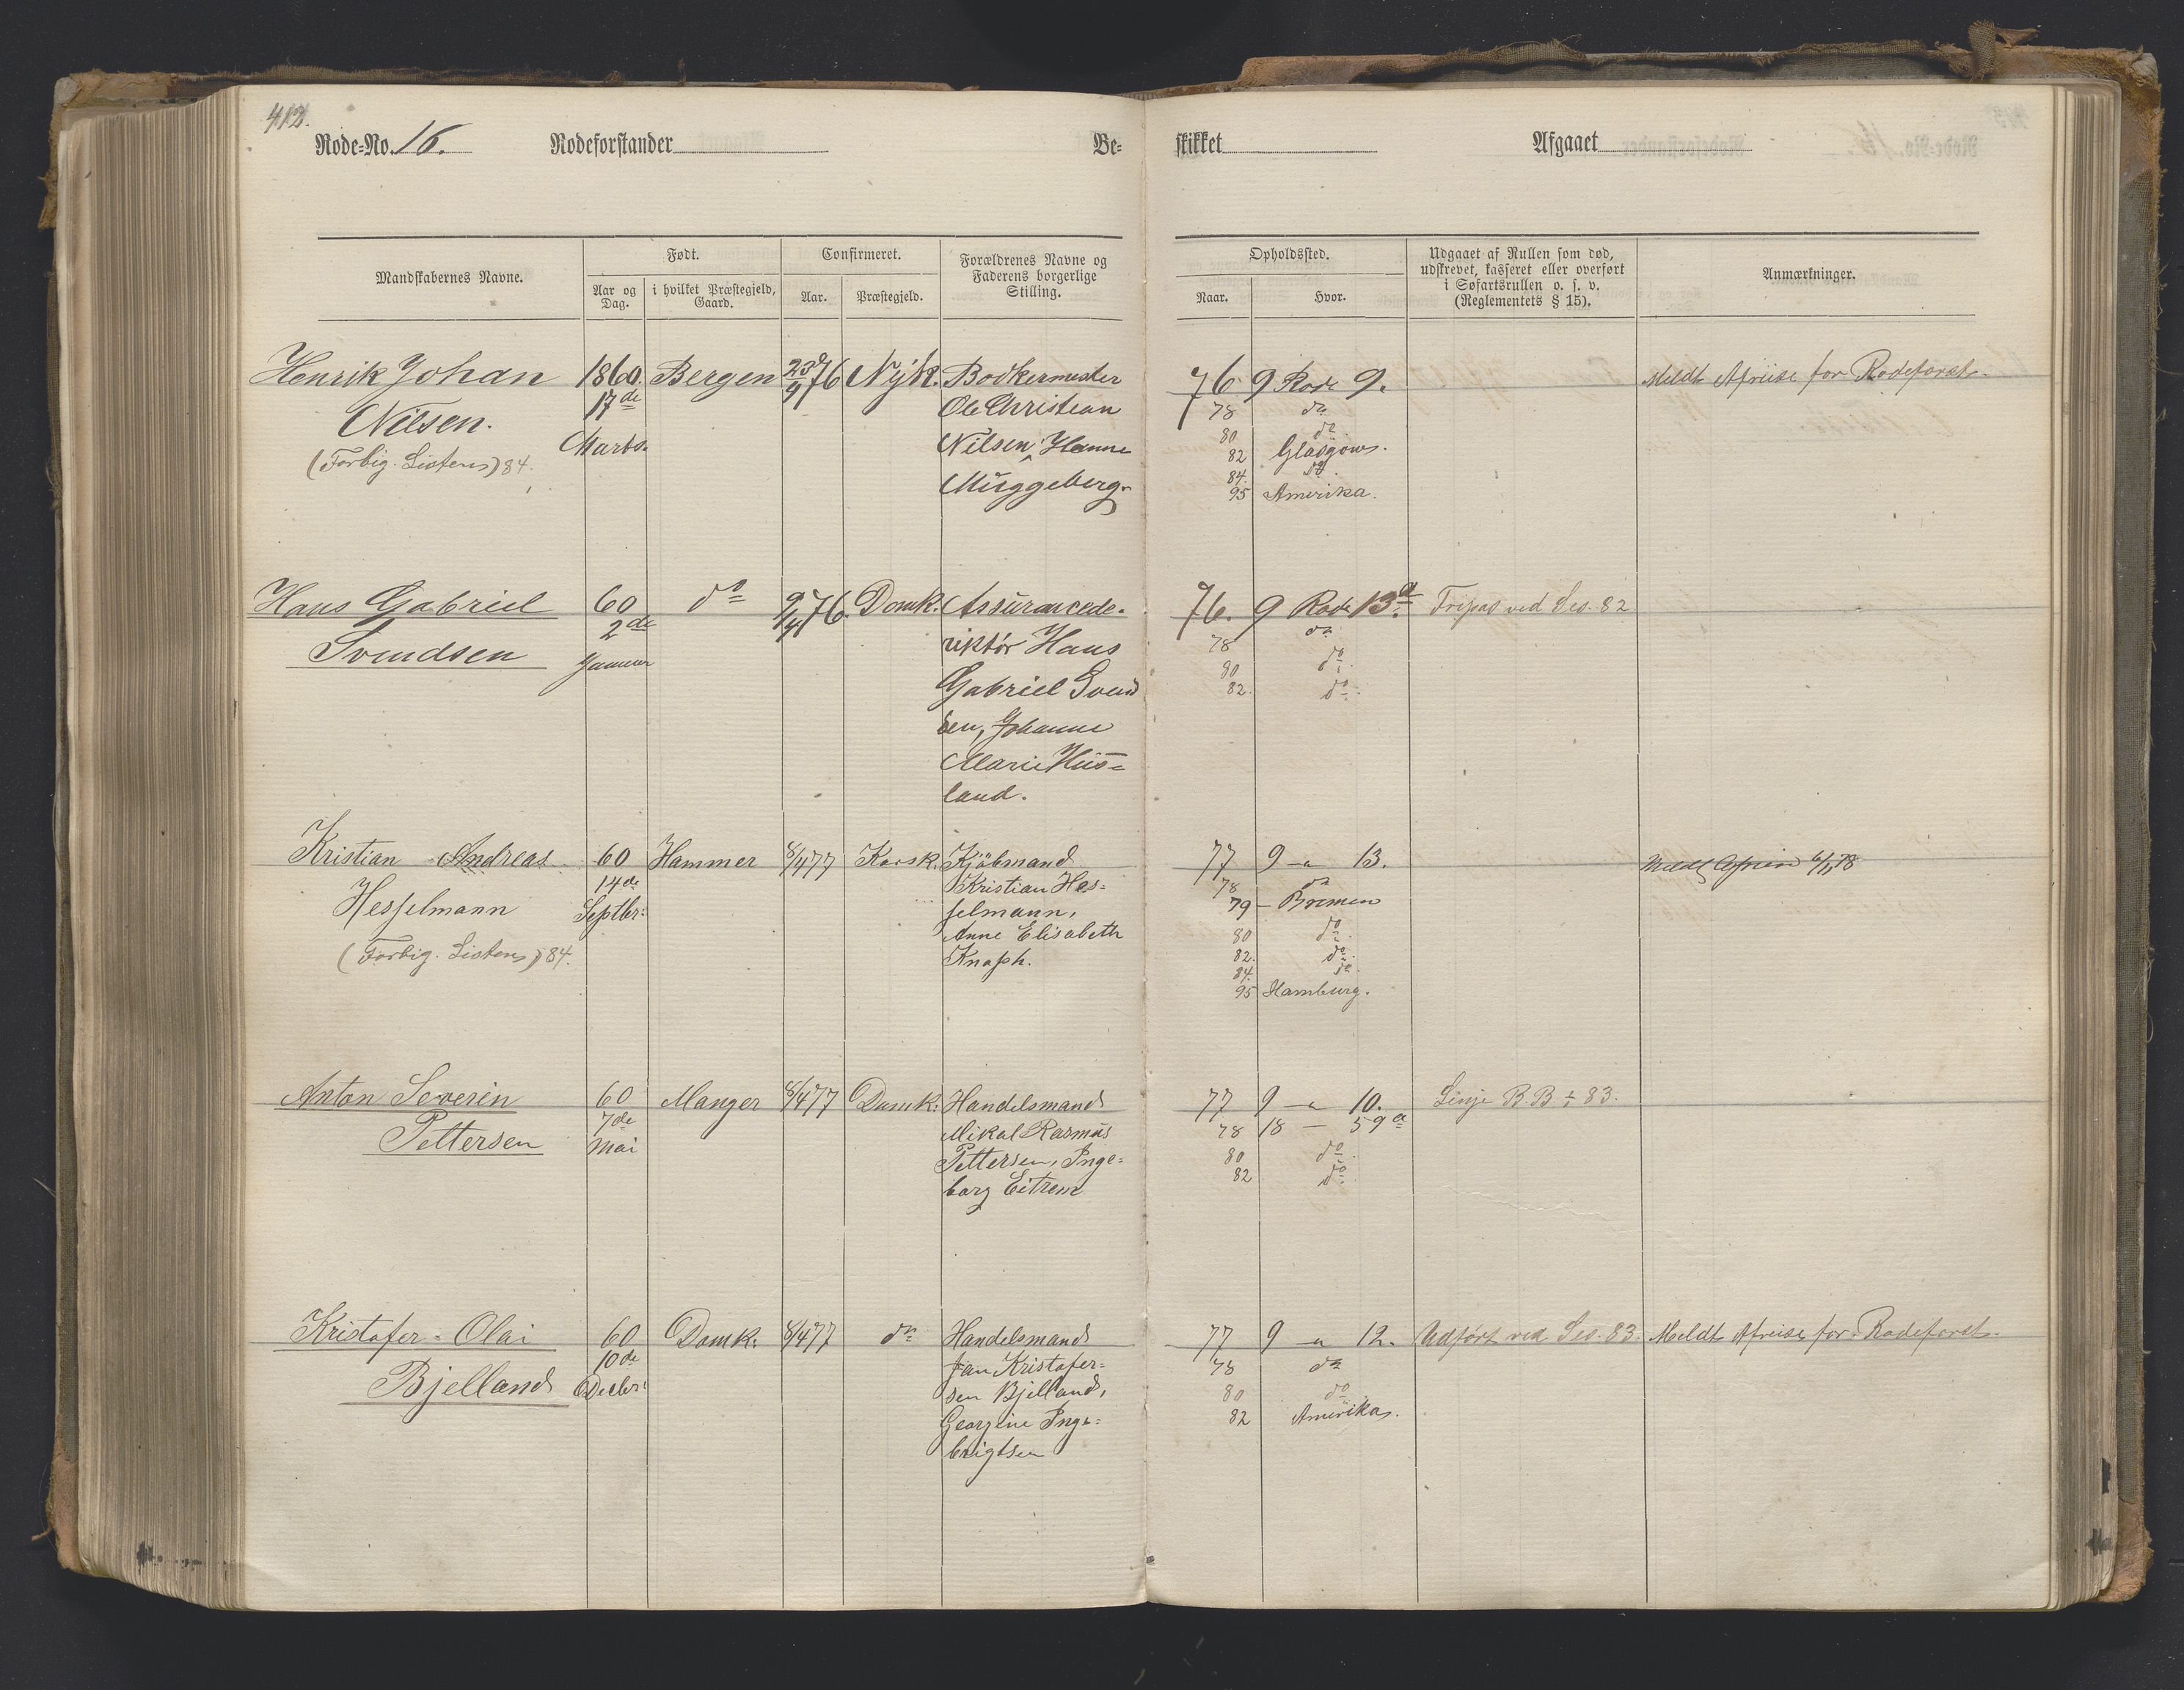 412.
Rode-No. 16. Rodeforstander Be- skikket Afgaaet
Mandskabernes Navne.
Født.
Aar og Dag.
i hvilket Præstegjeld, Gaard.
Confirmeret.
Aar.
Præstegjeld.
Forældrenes Navne og
Faderens borgerlige
Stilling.
Opholdssted.
Naar.
Hvor.
Udgaaet af Rullen som død,
udskrevet, kasseret eller overført
i Søfartsrullen o. s. v.
(Reglementets § 15).
Anmærkninger.
Henrik Johan 1860. Bergen 76 Nyk. Bodkermester 76 9 Rode 9. Meldt Afreise for Rodeforst.
17de Ole Christian 78 do
Nilsen. Marts. Nilsen, Hanne 80 do
(Forbig. Listens) 84. 82 Glasgow.
Müggeberg. 84. do
95 Amerika.
Hans Gabriel 60 do 9/4 76. Domk. Assurancede- 76. 9 Rode 13a Fripas ved Ses. 82
2de riktör Hans 78 do
Svendsen Januar 80 do
Gabriel Svend 82. do
sen, Johanne
Marie Hüs=
land.
Kristian Andreas 60 Hammer 8/4 77 Korsk. Kjöbmand 77 9 - " 13. Meldt Afreise
14de Kristian Hes= 78 do
Hesselmann Septbr: selmann, 79 - Bremen
Anne Elisabeth 80 do
(Forbig. Listens) 84. Knaph. 82. do
84. do
95 Hamburg.
Anton Severin 60 Manger 8/4 77 Domk: Handelsmand 77 9 - " 10. Linje B. B. 83.
7de Mikal Rasmus 78 18 - 59a
Pettersen Mai Pettersen, Inge= 80 do
borg Eitrem 82 do
Kristofer - Olai 60 Domk: 8/4 77 do Handelsmand 77 9 - " 12. Udført ved Ses. 83. Meldt Afreise for Rodeforst.
10de Jan Kristofer= 78 do
Bjelland Decbr: sen Bjelland, 80 do
Georgine Inge= 82 Amerika.
brigtsen